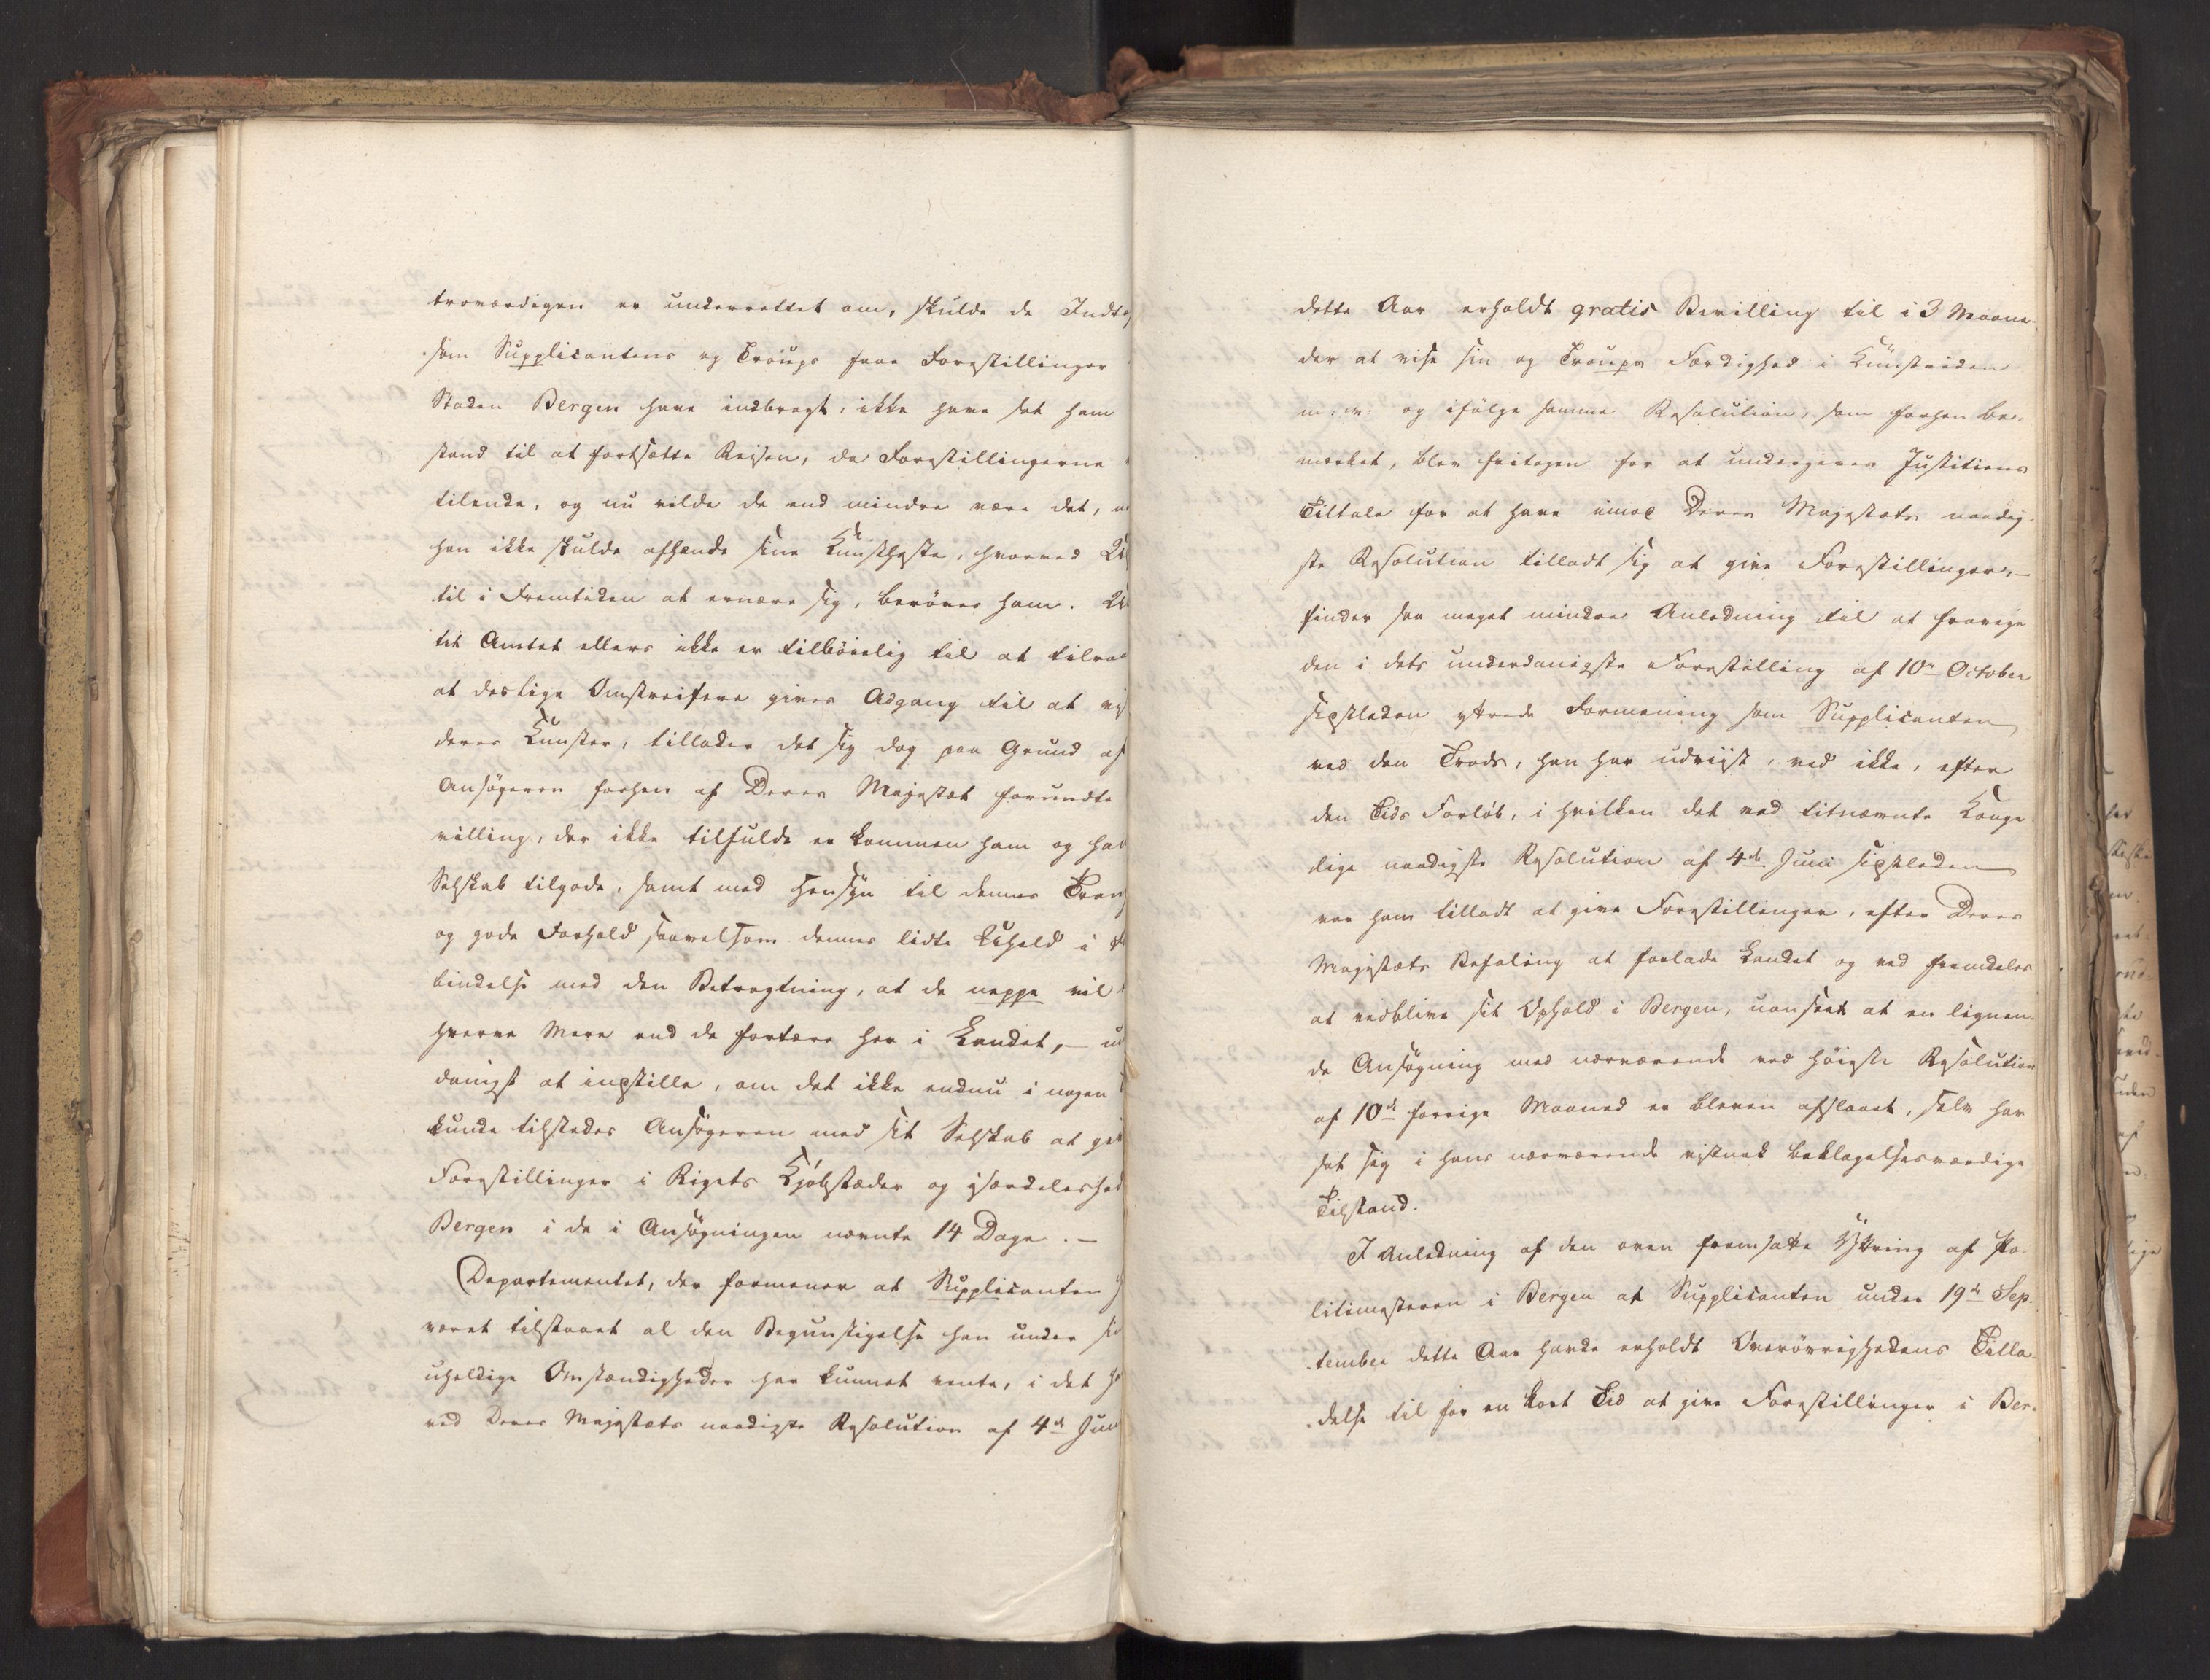 troværdigen er underrettet om, skulde de Indt
som Supplicantens og Troups faae Forestillinger
Staden Bergen have indbragt, ikke have sat ham
stand til at fortsætte Reisen, da Forestillingerne
tilende, og nu vilde de end mindre være det,
han ikke skulde afhænde sine Kunstheste, hvorved
til i Fremtiden at ernære sig, berøves ham.
tit Amtet ellers ikke er tilbøielig til at tilraa
at deslige Omstreifere gives Adgang til at vi
deres Kunster, tillader det sig dog paa Grund af
Ansøgeren forhen af Deres Majestæt forundte
villing, der ikke tilfulde er kommen ham og ha
Selskab tilgode, samt med Hensyn til dennes Tran
og gode Forhold saavelsom dennes lidte Uheld i
bindelse med den Betragtning, at de neppe vil
hverve Mere end de fortære her i Landet, –
danigst at indstille, om det ikke endnu i nogen
kunde tilstedes Ansøgeren med sit Selskab at gi
Forestillinger i Rigets Kjøbstæder og især­deleshed
Bergen i de i Ansøgningen nævnte 14 Dage. –
Departementet, der formener at Supplicanten
været tilstaaet al den Begunstigelse han under si
uheldige Omstændigheder har kunnet vente, i det ha
ved Deres Majestæts naadigste Resolution af 4de Juni
dette Aar erholdt gratis Bevilling til i 3 Maane-
der at vise sin og Troups Færdighed i Kunstriden
m: v: og ifølge samme Resolution, som forhen be-
mærket, blev fritagen for at undergives Justitiens
Tiltale for at have imod Deres Majestæts naadig-
ste Resolution tilladt sig at give Forestillinger, –
finder saa meget mindre Anledning til at fravige
den i dets underdanigste Forestilling af 10de October
sidstleden yttrede Formening som Supplicanten
ved den Trods, han har udviist, ved ikke, efter
den Tids Forløb, i hvilken det ved titnævnte Konge-
lige naadigste Resolution af 4de Juni sidstleden
var ham tilladt at give Forestillinger, efter Deres
Majestæts Befaling at forlade Landet og ved fremdeles
at vedblive sit Ophold i Bergen, uanseet at en lignen-
de Ansøgning med nærværende ved høieste Resolution
af 10de forrige Maaned er bleven afslaaet, selv har
sat sig i hans nærværende vistnok beklagelsesværdige
Tilstand.
I Anledning af den oven fremsatte Yttring af Po-
litimesteren i Bergen at Supplicanten under 19de Sep-
tember dette Aar havde erholdt Overøvrighedens Tilla-
delse til for en kort Tid at give Forestillinger i Ber-